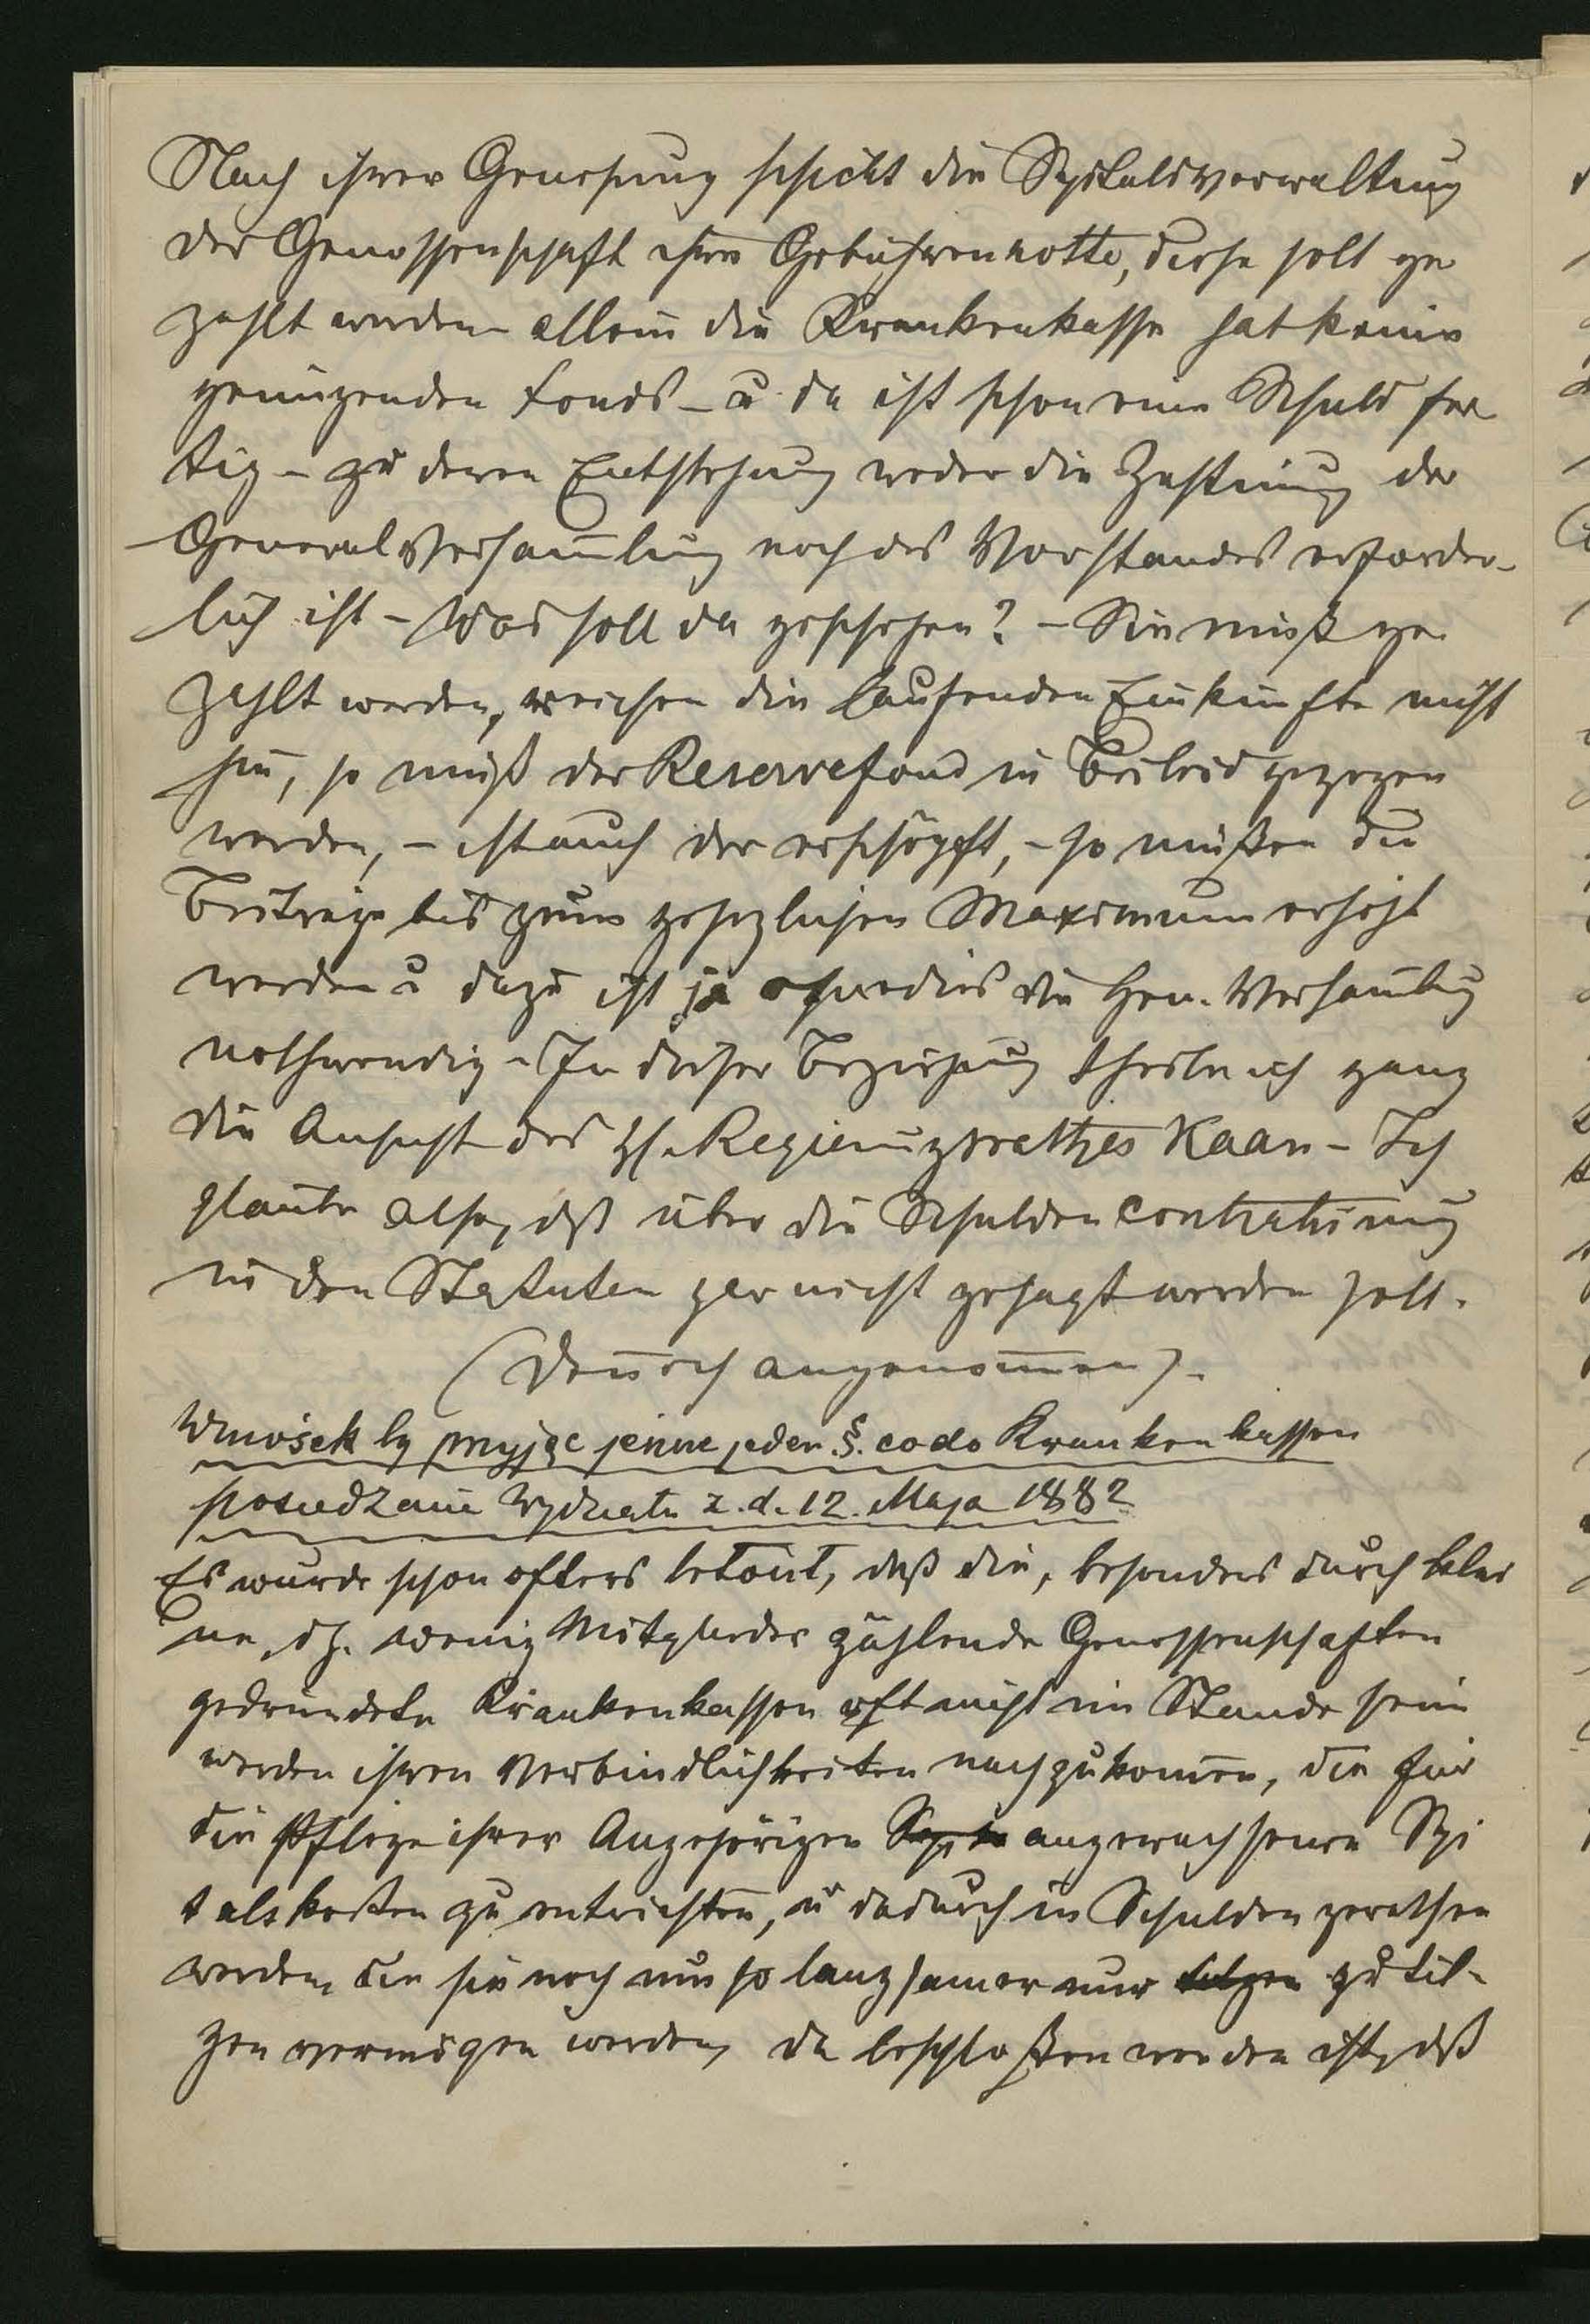 Nach ihrer Genesung schickt die Spitalsverwaltung
der Genossenschaft ihre Gebührennotte, diese soll ge
zahlt werden allein die Krankenkasse hat keine
genügenden Fonds – u da ist schon eine Schuld fer
tig – zu deren Entstehung weder die Zustimmg der
Generalversam̅lung noch des Vorstandes erforder-
lich ist – Was soll da geschehen? – Sie muß ge
zahlt werden, reichen die laufenden Einkünfte nicht
hin, so muß der Reservefond in Beileid gezogen
werden, – ist auch der erschöpft, – so müßen die
Beiträge bis zum gesezlichen Maximum erhöht
werden u dazu ist ja ohnedies die Gen. Versam̅lung
nothwendig – In dieser Beziehung theile ich ganz
die Ansicht des H. Regierungsrathes Kaan – Ich
glaube also, dß über die Schulden Contrahirung
in den Statuten gar nicht gesagt werden soll.
(Den̅och angenom̅en).
Wniosek by przyjąc jeszcze jeden §. co do Krankenkassen
posiedzenie Wydziału z. d. 12. Maja 1882
Es wurde schon öfters betont, daß die, besonders durch klei
ne, dh. wenig Mitglieder zählende Genossenschaften
gegründete Krankenkassen oft nicht im Stande sein
werden ihren Verbindlichkeiten nachzukom̅en, die für
die Pflege ihrer Angehörigen angewachsenen Spi
talskosten zu entrichten, u dadurch in Schulden gerathen
werden, die sie noch um so langsamer nur zu til-
gen vermögen werden, da beschloßen worden ist, dß